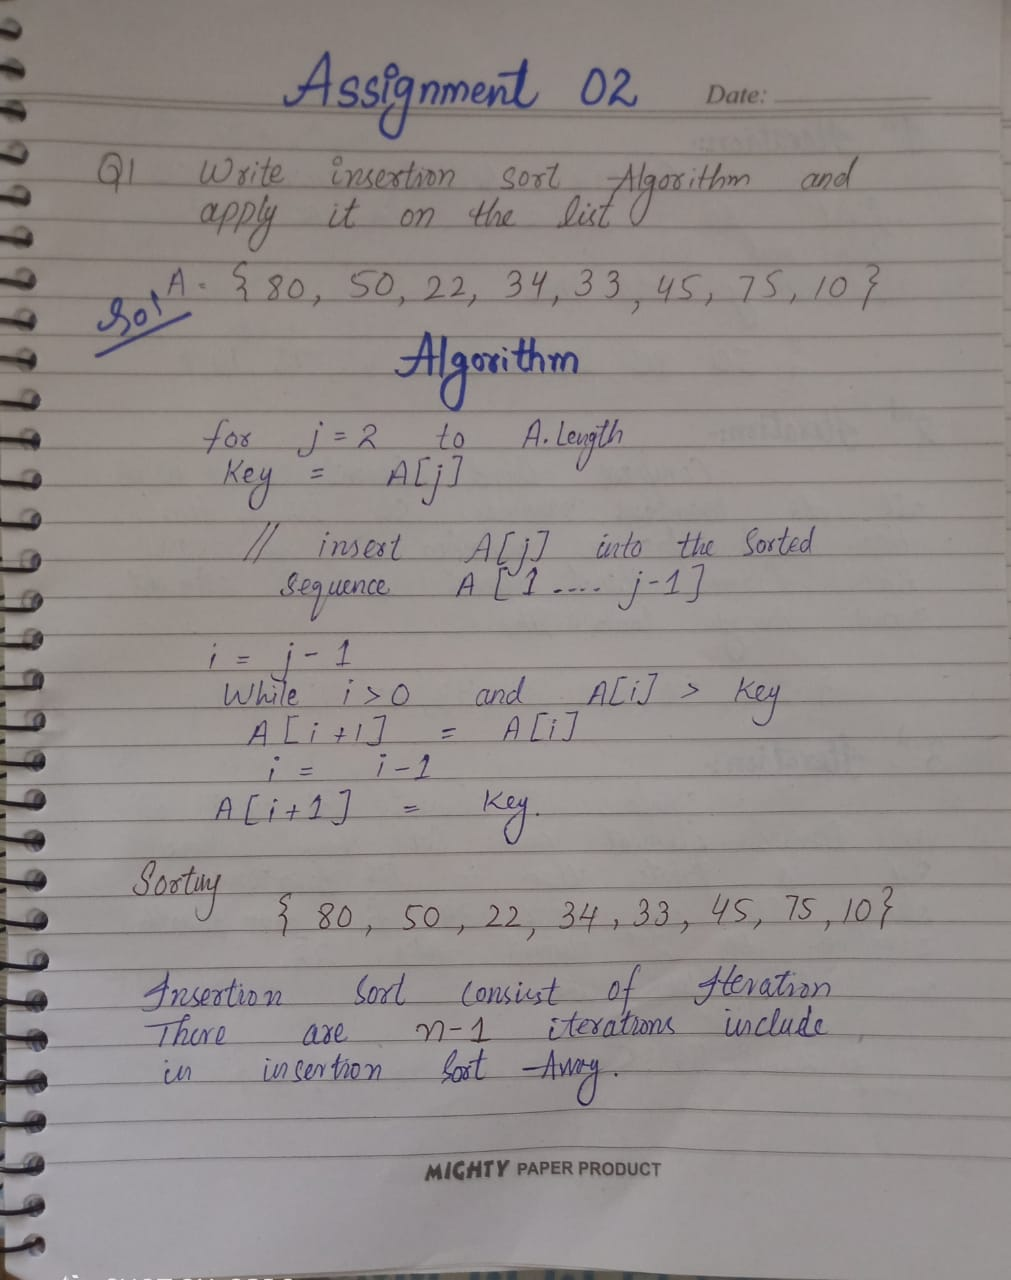 Assignment 02
Date:
Q1 Write insertion sort Algorithm and
apply it on the list
A = { 80, 50, 22, 34, 33, 45, 75, 10 }
Sol
Algorithm
for j = 2 to A. Length
Key = A[j]
// insert A[j] into the Sorted
Sequence A [1 .... j-1]
i = j - 1
While i > 0 and A[i] > Key
A [i +1] = A[i]
i = i - 1
A [i + 1] = Key.
Sorting
{ 80, 50, 22, 34, 33, 45, 75, 10 }
Insertion Sort Consist of Iteration
There are n-1 iterations include
in insertion Sort Array.
MIGHTY PAPER PRODUCT